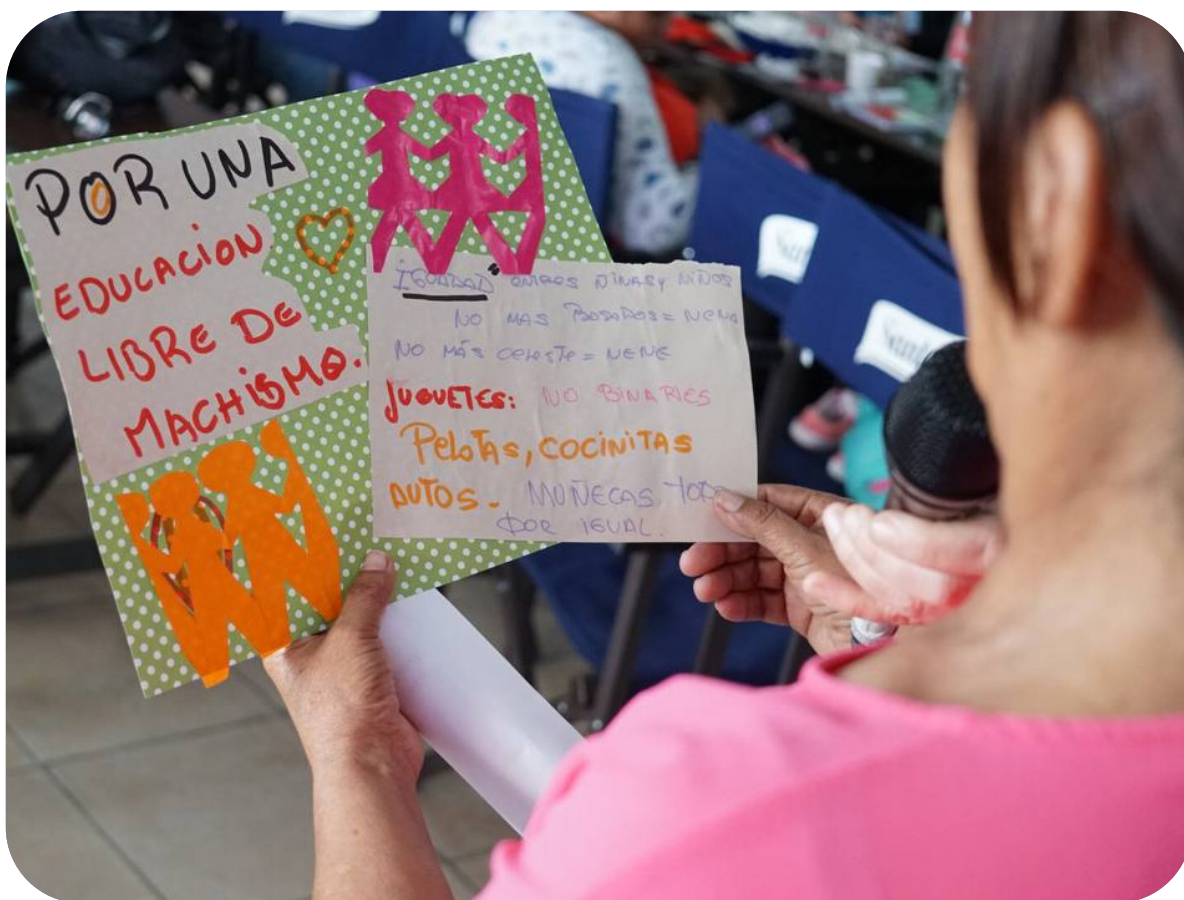 POR UNA
EDUCACION
LIBRE DE
MACHISMO.
IGUALDAD ENTRES NIÑAS Y NIÑOS
NO MAS ROSADOS = NENA
NO MÁS CELESTE = NENE
JUGUETES: NO BINARIES
PELOTAS, COCINITAS
AUTOS. MUÑECAS
POR IGUAL.